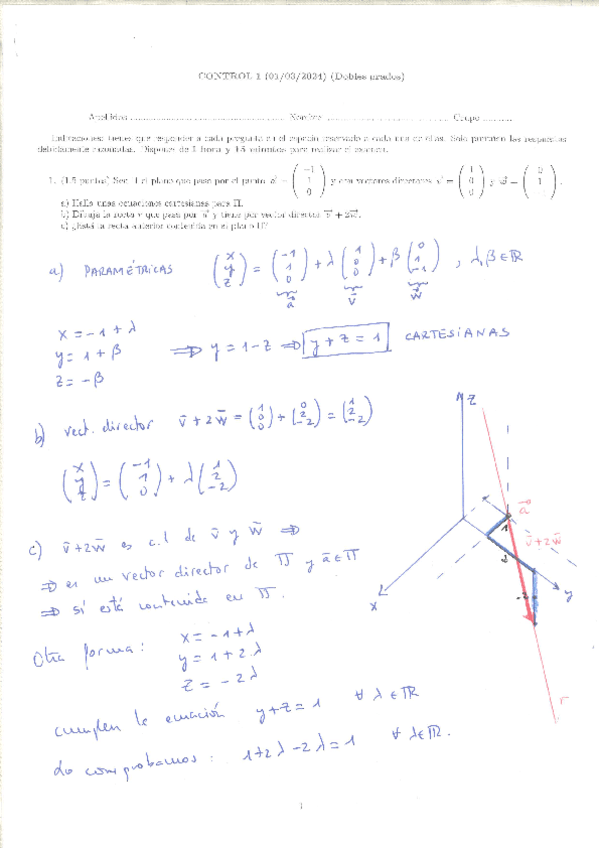 CONTROL 1 (01/03/2024) (Dobles grados)
Apellidos ........................ Nombre ........................ Grupo ..........
Indicaciones: tienes que responder a cada pregunta en el espacio reservado a cada una de ellas. Solo puntúan las respuestas
debidamente razonadas. Dispones de 1 hora y 15 minutos para realizar el examen.
1. (1.5 puntos) Sea el plano que pasa por el punto a = (-1, 1, 0) y con vectores directores v = (1, 0, 0) y w = (0, 1, ).
a) Halla unas ecuaciones cartesianas para Π.
b) Dibuja la recta r que pasa por a y tiene por vector director v + 2w.
c) ¿Está la recta anterior contenida en el plano Π?
a) PARAMÉTRICAS (x, y, z) = (-1, 1, 0) + λ (1, 0, 0) + β (0, 1, -1) , λ, β ∈ ℝ
a v w
x = -1 + λ
y = 1 + β ⇒ y = 1 - z ⇒ y + z = 1 CARTESIANAS
z = -β
b) vect. director v + 2w = (1, 0, 0) + (0, 2, -2) = (1, 2, -2)
(x, y, z) = (-1, 1, 0) + λ (1, 2, -2)
c) v + 2w es c.l de v y w ⇒
⇒ es un vector director de Π y a ∈ Π
⇒ sí está contenida en Π.
Otra forma: x = -1 + λ
y = 1 + 2λ
z = -2λ
cumplen la ecuación y + z = 1 ∀ λ ∈ ℝ
Lo comprobamos: 1 + 2λ - 2λ = 1 ∀ λ ∈ ℝ.
z
a
1
v + 2w
2
-2
x
y
r
1